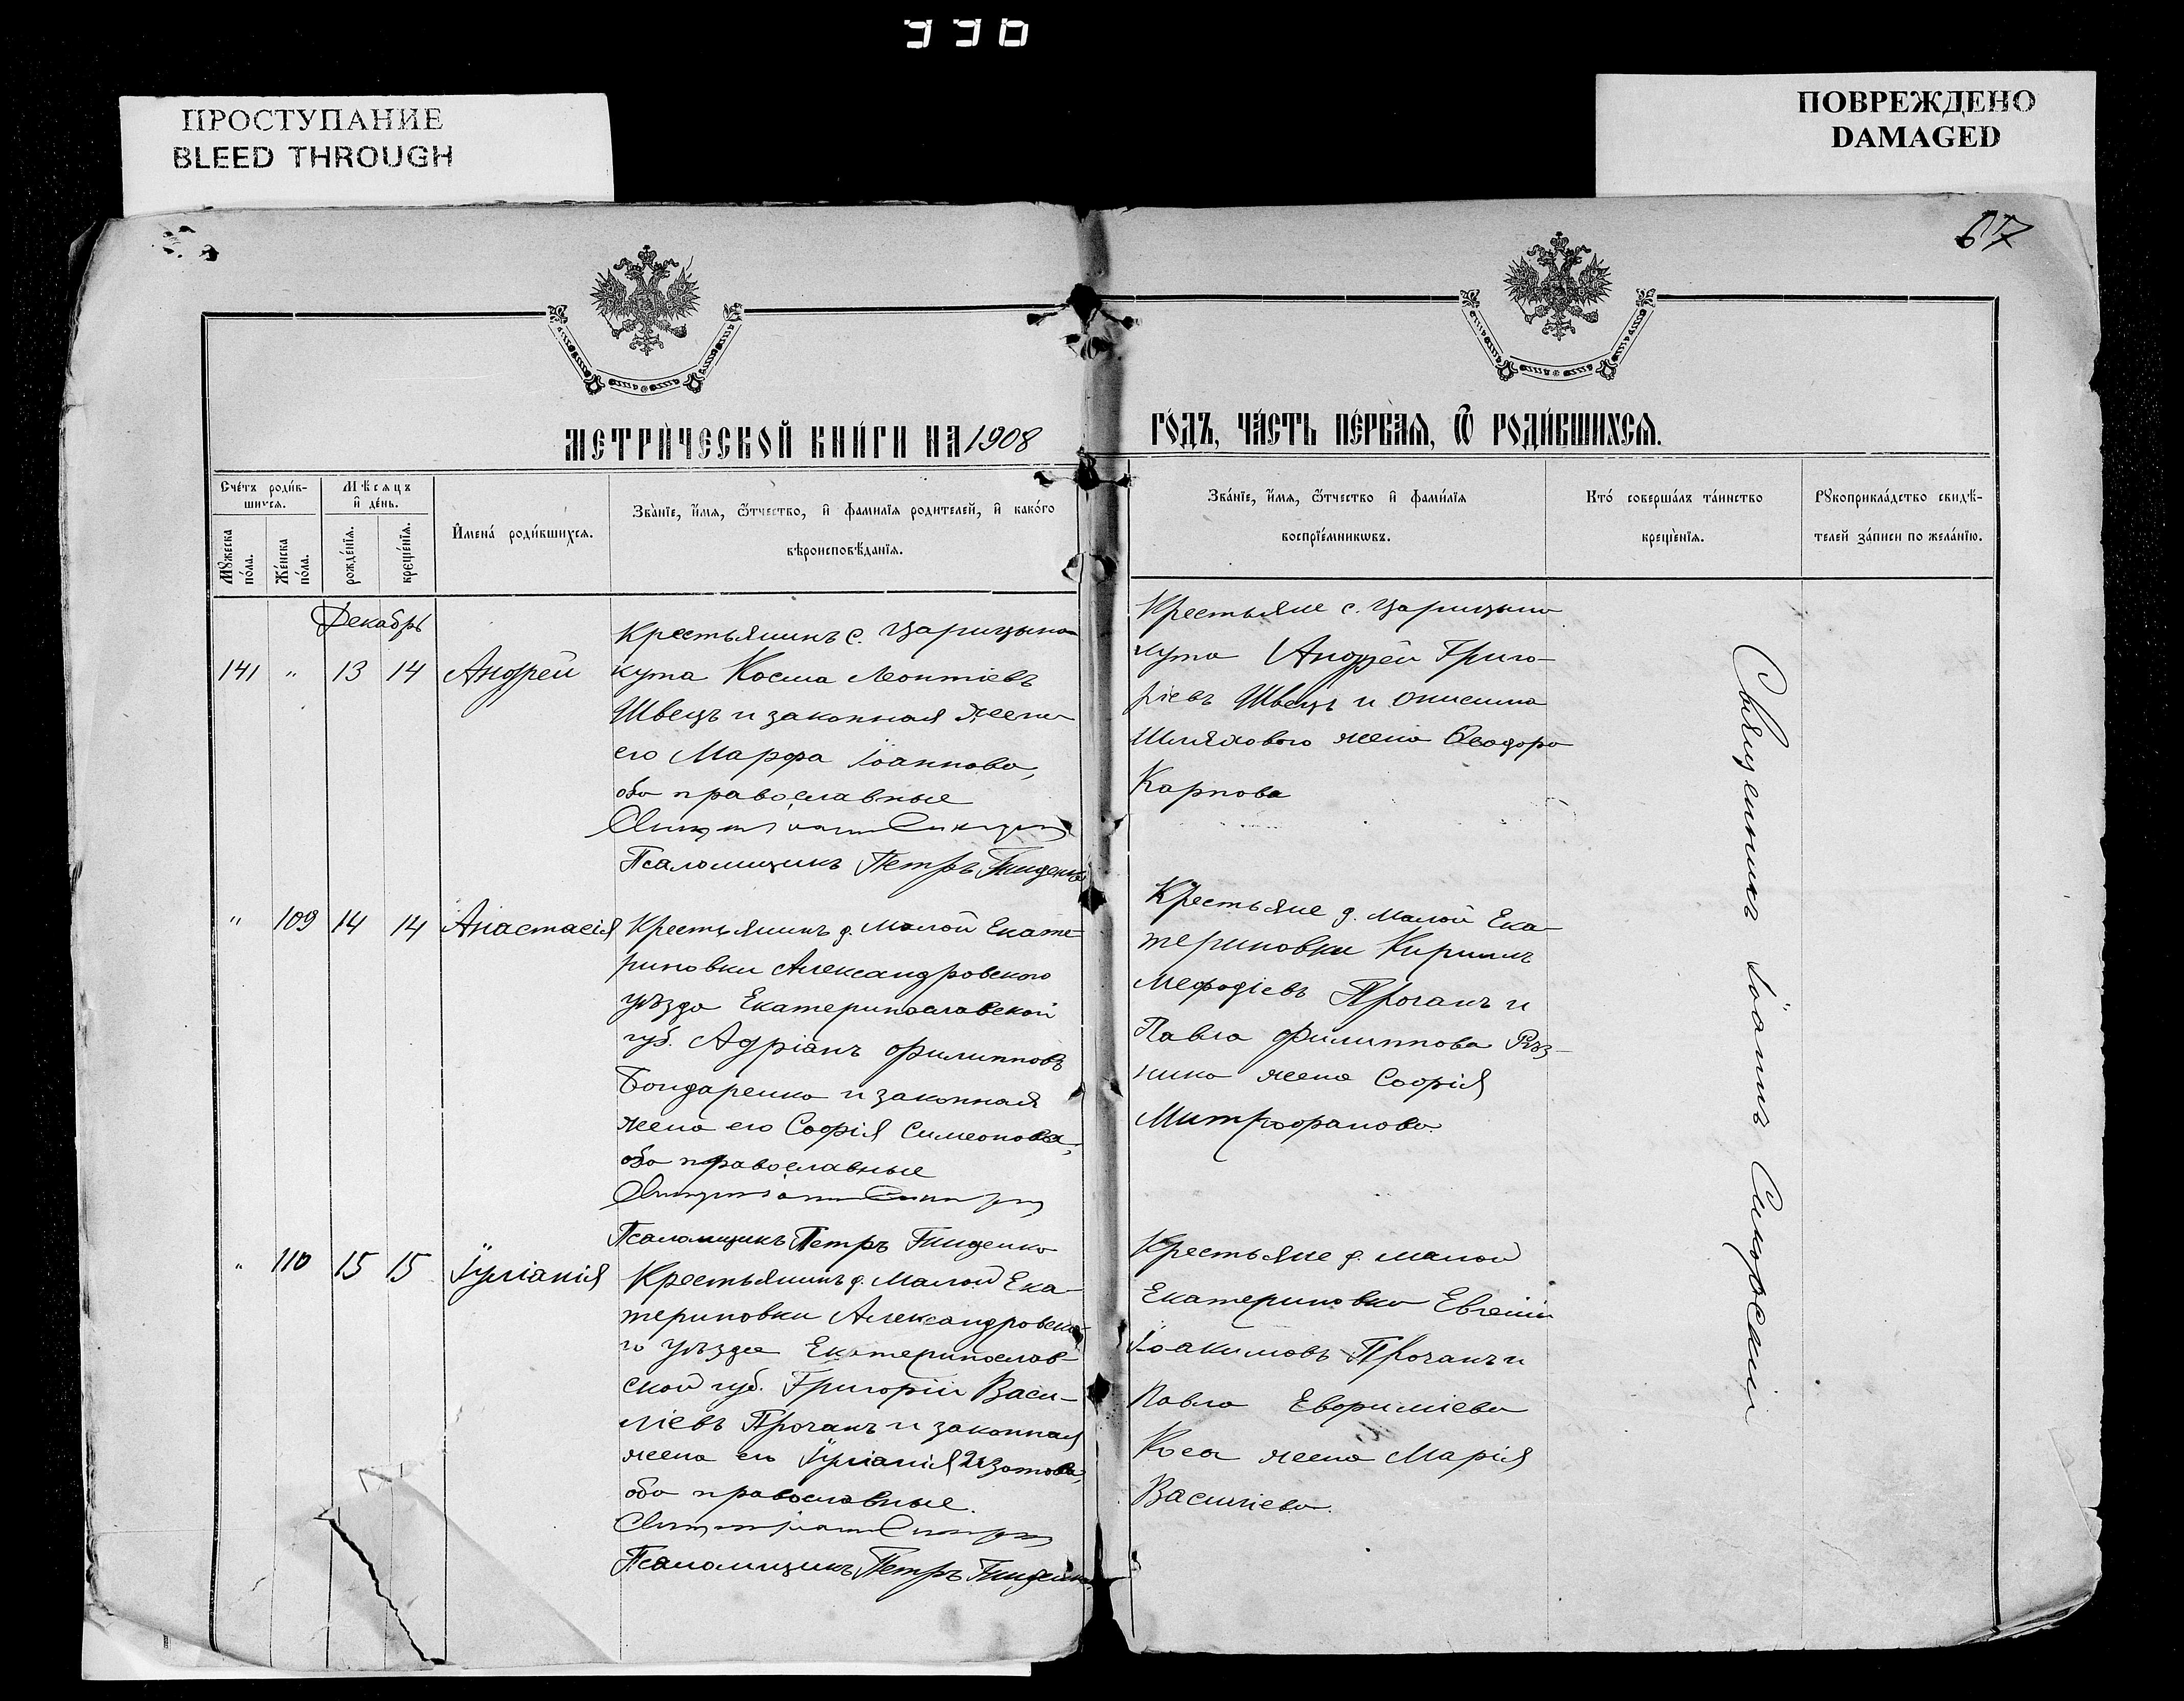 336
ПРОСТУПАНИЕ
BLEED THROUGH
ПОВРЕЖДЕНО
DAMAGED
67
МЕТРИЧЕСКОЙ КНИГИ НА 1908
ГОДЪ, ЧАСТЬ ПЕРВАЯ, Ѡ РОДИВШИХСЯ.
Счетъ родив-
шихся.
Мѣсяцъ
и день.
Мужеска
пола.
Женска
пола.
рожденїя.
крещенїя.
Имена родившихся.
Званїе, имя, ѿчество, и фамилїя родителей, и какого
вѣроисповѣданїя.
Званїе, имя, ѿчество и фамилїя
воспрїемникѡвъ.
Кто совершалъ таинство
крещенїя.
Рукоприкладство свидѣ-
телей записи по желанїю.
Декабрь
141 " 13 14 Андрей
Крестьянинъ с. Царицына
кута Косма Леонтіевъ
Швецъ и законная жена
его Марфа Іоаннова,
оба православные
Псаломщикъ Петръ
Крестьяне с. Царицына
кута Андрей Григо-
ріевъ Швецъ и Онисима
жена Ѳеодора
Карпова
" 109 14 14 Анастасія
Крестьянинъ д. Малой Екате-
риновки Александровского
уѣзда Екатеринославской
губ. Адріанъ Филипповъ
Бондаренко и законная
жена его Софія Симеонова,
оба православные
Псаломщикъ Петръ
Крестьяне д. Малой Ека-
териновки Кириллъ
Мефодіевъ Прочанъ и
Павла Филиппова Рѣз-
ника жена Софія
Митрофанова
" 110 15 15 Іуліанія
Крестьянинъ д. Малой Ека-
териновки Александровска-
го уѣзда Екатеринослав-
ской губ. Григорій Васи-
ліевъ Прочанъ и законная
жена его Іуліанія Изотова,
оба православные.
Псаломщикъ Петръ
Крестьяне д. Малой
Екатериновки Евгеній
Іоакимовъ Прочанъ и
Павла Евфиміева
Коса жена Марія
Василіева.
Священникъ Іоаннъ Сикорскій